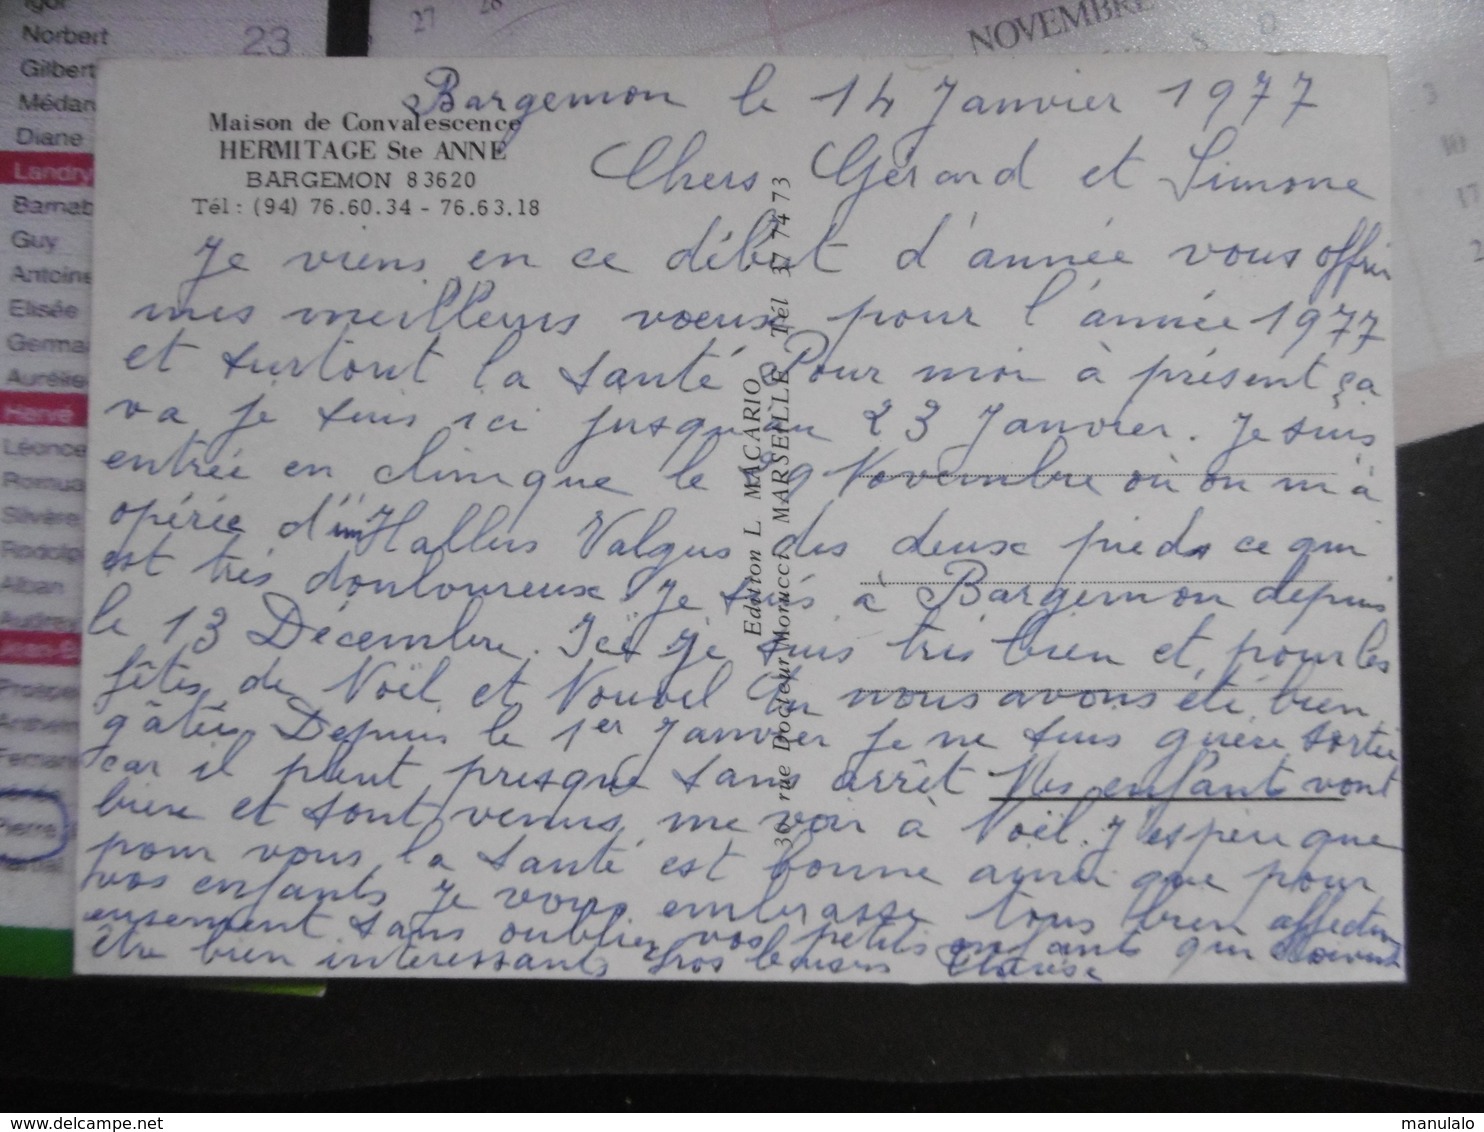 Igor
Norbert 23
Gilbert
Médar
Diane
Landry
Barnab
Guy
Antoine
Elisée
Germa
Aurélie
Hervé
Léonce
Romua
Silvère
Rodolp
Alban
Audrey
Jean-B
Prospe
Anthel
Fernan
Pierre
27 28
NOVEMBRE
Maison de Convalescence
HERMITAGE Ste ANNE
BARGEMON 83620
Tél : (94) 76.60.34 - 76.63.18
Bargemon le 14 Janvier 1977
Chers Gérard et Simone
Je viens en ce début d'année vous offrir
mes meilleurs voeux pour l'année 1977
et surtout la santé Pour moi à présent ça
va je suis ici jusqu'au 23 Janvier. Je suis
entrée en clinique le 29 Novembre où on m'a
opérée d'un Hallus Valgus des deux pieds ce qui
est très douloureux. Je suis à Bargemon depuis
le 13 Décembre. Ici je suis très bien et pour les
fêtes de Noël et Nouvel An nous avons été bien
gâtés Depuis le 1er Janvier je ne suis guère sortie
car il pleut presque sans arrêt Mes enfants vont
bien et sont venus me voir à Noël. J'espère que
pour vous la santé est bonne ainsi que pour
vos enfants Je vous embrasse tous bien affectu
eusement sans oublier vos petits enfants qui doivent
être bien intéressants Gros baisers
Edition L. MACARIO
36, rue Docteur Morucci MARSEILLE Tél 37 74 73
www.delcampe.net
manulalo